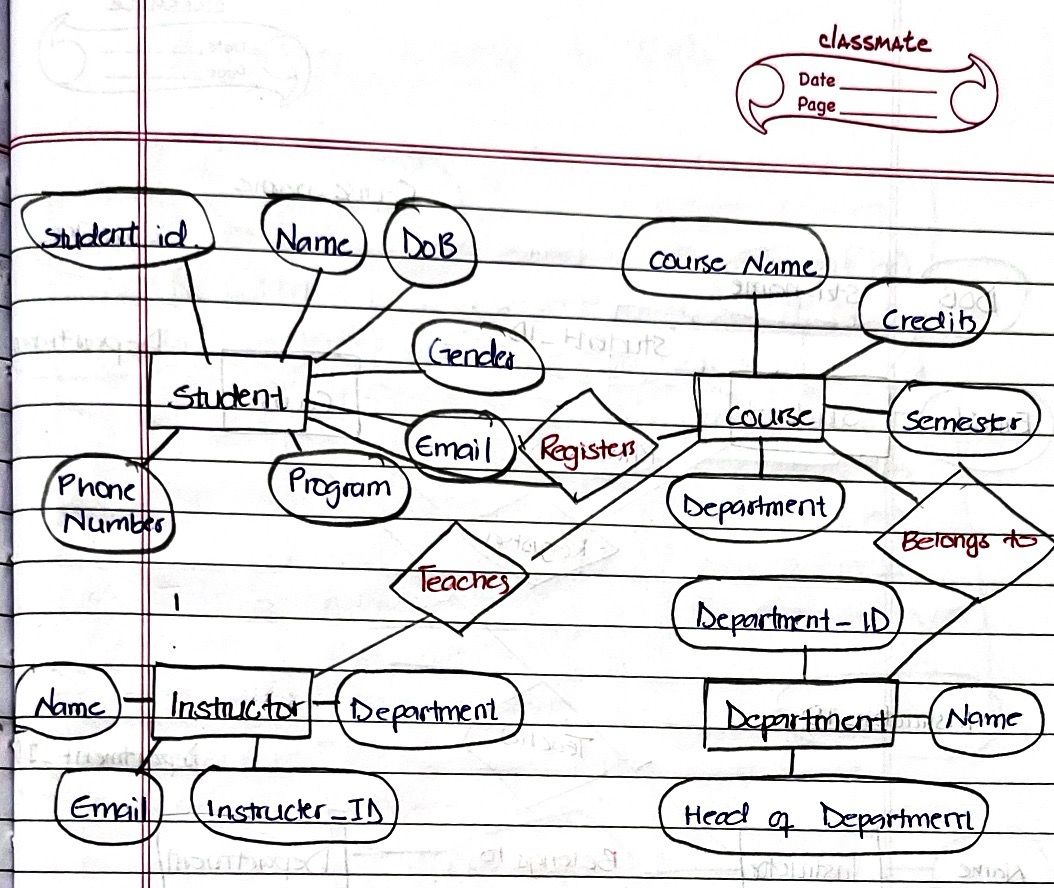 classmate
Date
Page
Student id.
Name
DoB
Course Name
Credits
Gender
Student
Course
Semester
Email
Registers
Phone
Number
Program
Department
Belongs to
Teaches
Department_ID
Name
Instructor
Department
Department
Name
Email
Instructer_ID
Head of Department